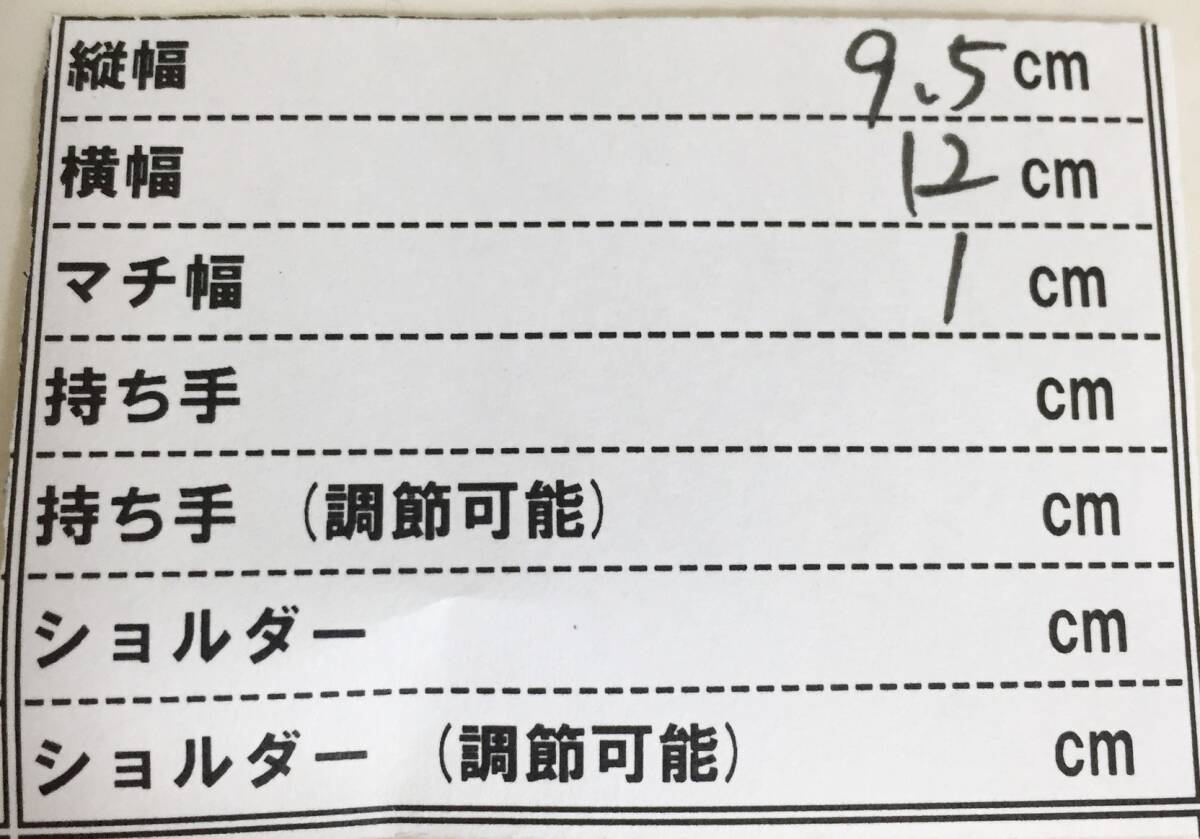 縦幅 9.5 cm
横幅 12 cm
マチ幅 1 cm
持ち手 cm
持ち手 (調節可能) cm
ショルダー cm
ショルダー (調節可能) cm